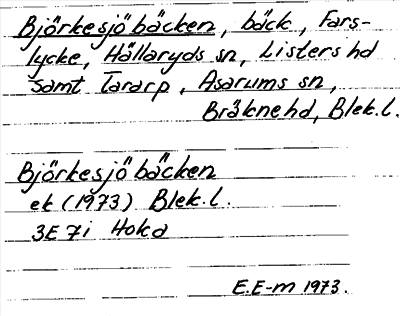 Björkesjöbäcken, bäck, Fars-
lycke, Hällaryds sn, Listers hd
samt Tararp, Asarums sn,
Bräkne hd, Blek. l.
Björkesjöbäcken
ek (1973) Blek. l.
3E 7i Hoka
E.E-m 1973.